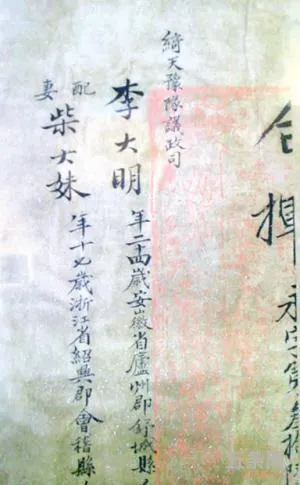 合揮
綺天豫隊議政司
李大明 年二十四歲安徽省廬州郡舒城縣
配妻 柴大妹 年十七歲浙江省紹興郡會稽縣